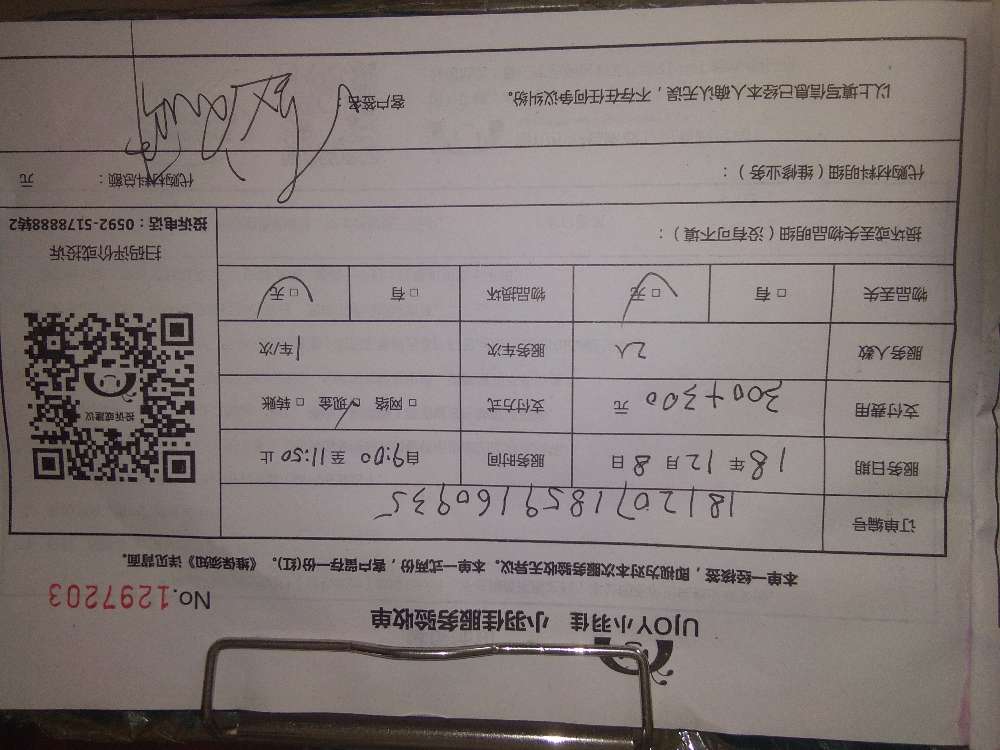 UJOY小羽佳 小羽佳服务验收单
No.1297203
本单一经核签，即视为对本次服务验收无异议。本单一式两份，客户留存一份(红)。《维保须知》详见背面。
订单编号 181207185916093S
服务日期 18年12月8日 服务时间 自9:00至11:50止
支付费用 300+300 元 支付方式 □网络 □现金 □转账
服务人数 2人 服务车次 1车/次
物品丢失 □有 □无 物品损坏 □有 □无
投诉或建议
扫码评价或投诉
投诉电话：0592-5178888转2
损坏或丢失物品明细（没有可不填）：
代购材料明细（维修业务）： 代购材料总额： 元
以上填写信息已经本人确认无误，不存在任何争议纠纷。 客户签名：